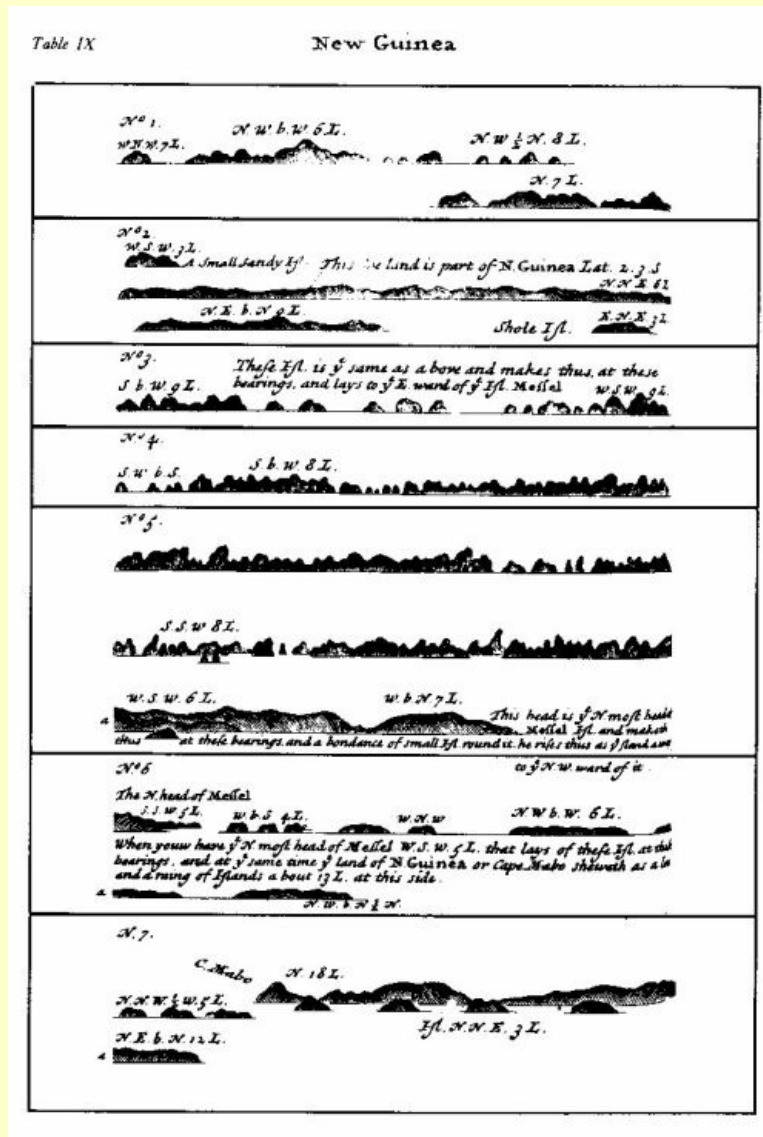 Table IX
New Guinea
Nº 1.
W.N.W. 7 L.
N. W b. W 6 L.
N. W ½ N. 8 L.
N. 7 L.
Nº 2.
W. S. W. 3 L.
A Small Sandy Iſl. This land is part of N. Guinea Lat. 2. 3. S
N. N. E. 6 L
N. E. b. N 9 L.
Shole Iſl.
E. N. E. 3 L
Nº 3.
Theſe Iſl. is yᵉ same as a bove and makes thus, at these
bearings, and lays to yᵉ E. ward of yᵉ Iſl. Meſſel
S. b. W. 9 L.
W. S. W. 9 L.
Nº 4.
S. W b. S.
S. b. W. 8 L.
Nº 5.
S. S. W 8 L.
W. S. W. 6 L.
W. b N. 7 L.
a
This head is yᵉ N. moſt head
Meſſel Iſl. and maketh
thus at theſe bearings, and a bondance of small Iſl. round it, he riſes thus as yᵉ
to yᵉ N. W. ward of it.
Nº 6
The N. head of Meſſel
S. S. W 5 L.
W. b. S 4 L.
W. N. W
N. W b. W. 6 L.
When youw have yᵉ N. moſt head of Meſſel W. S. W. 5 L. that lays of theſe Iſl. at this
bearings, and at yᵉ same time yᵉ land of N Guinea or Cape Mabo sheweth as a
and a raing of Iſlands a bout 13 L. at this side.
a
N. W. b. N ½ N.
N. 7.
C. Mabo
N. 18 L.
N. N. W. ½ W. 5 L.
Iſl. N. N. E. 3 L.
N. E. b. N. 12 L.
a